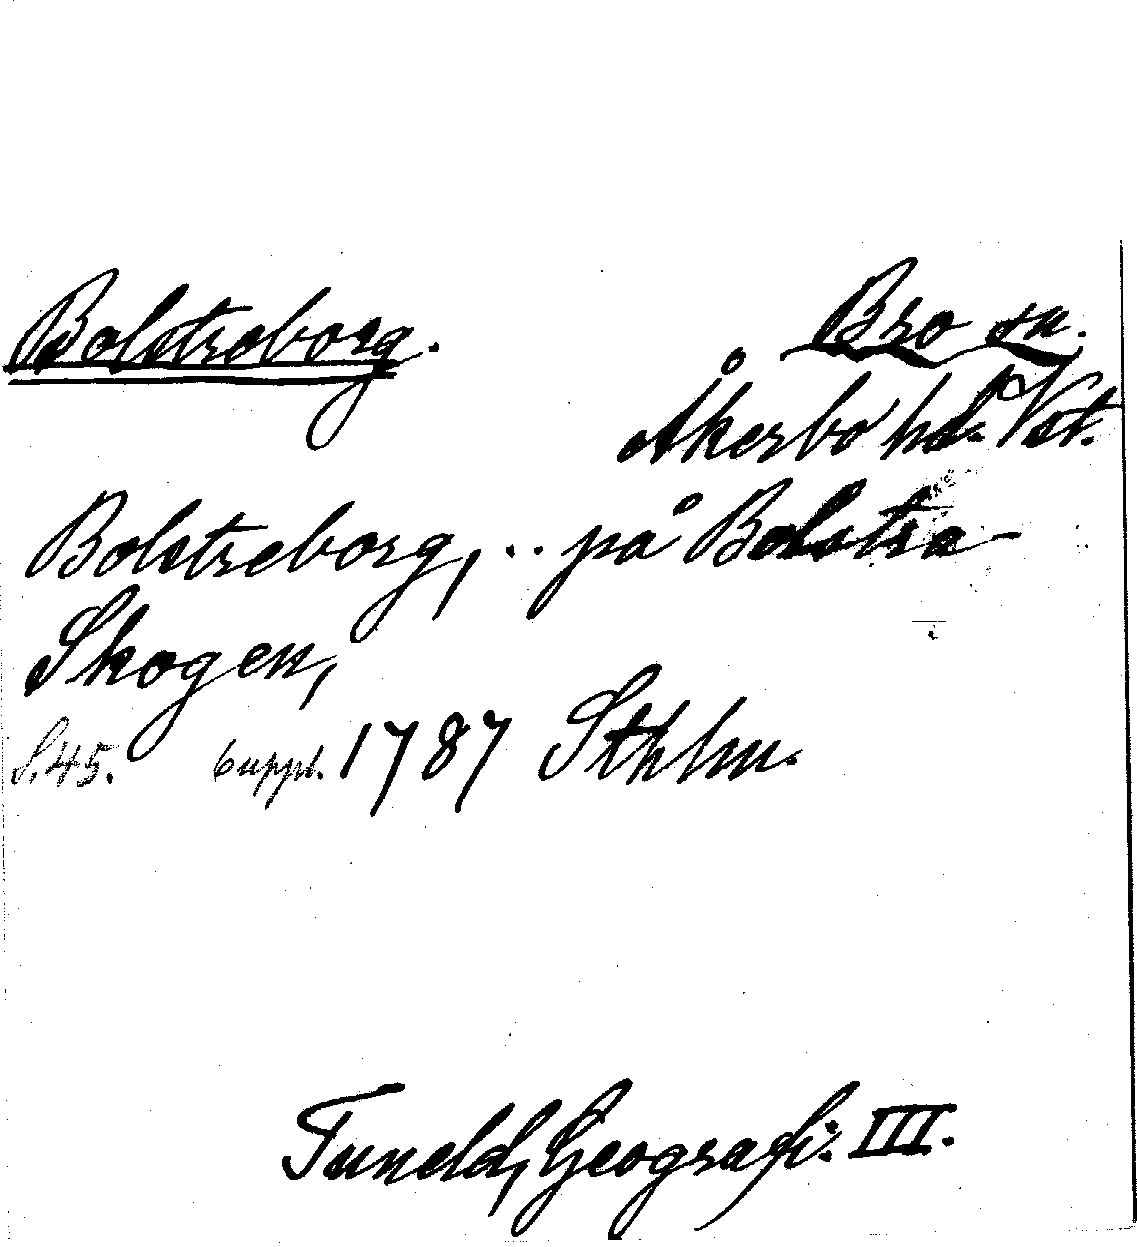 Bolstreborg. Bro sn.
Åkerbo hd. Vst.
Bolstreborg, .. på Bolstra
Skogen,
S. 45. 6 uppl. 1787 Sthlm.
Tuneld, Geografi. III.